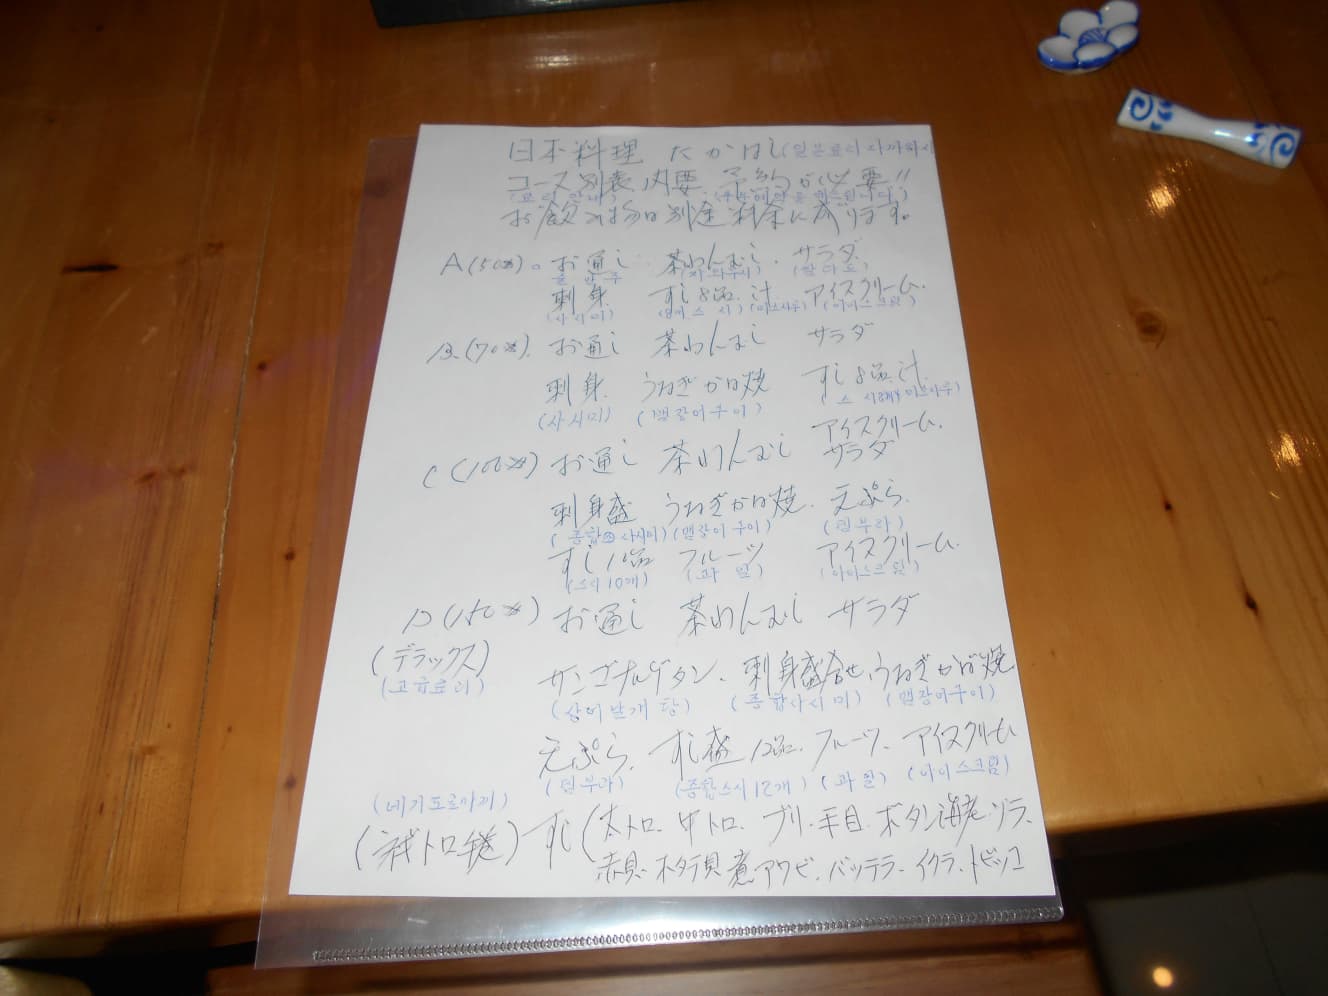 日本料理 たかはし(일본료리 다까하시
コース別表内要 予約が必要!!
(료리안내)
お飲み物は別途料金に有ります。
A(50※)。お通し 茶わんむし. サラダ.
(자와무시) (샐러드)
刺身 すし8品. 汁. アイスクリーム.
(사시미) (아이스크림)
B(70※). お通し 茶わんむし サラダ
刺身. うなぎかば焼 すし8品汁.
(사시미) (뱀장어구이)
アイスクリーム.
C(100※) お通し 茶わんむし サラダ
刺身盛 うなぎかば焼. 天ぷら.
(종합사시미) (뱀장어구이) (텐부라)
すし10品 フルーツ アイスクリーム.
(스시10개) (과일) (아이스크림)
D(150※) お通し 茶わんむし サラダ
(デラックス)
(고급료리)
刺身盛合せ. うなぎかば焼
(종합사시미) (뱀장어구이)
天ぷら. すし盛12品. フルーツ. アイスクリーム
(텐부라) (종합스시12개) (과일) (아이스크림)
(네기도로마끼)
すし(大トロ. 中トロ. ブリ. ボタン海老.
赤貝. ホタテ貝 煮アワビ. バッテラ. イクラ. トビッコ